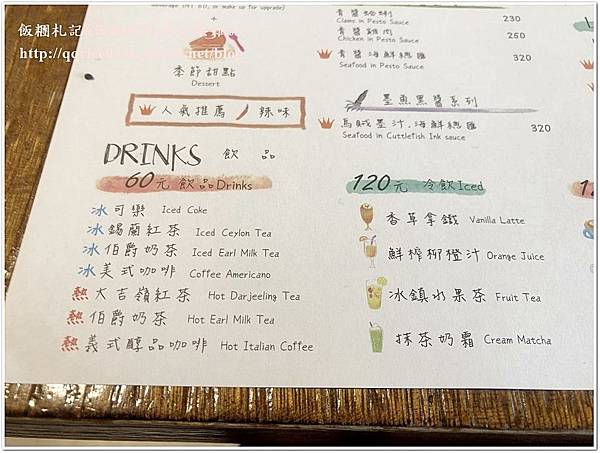 飯糰札記
Beverage (NT 60, or make up for upgrade)
+
季節甜點
Dessert
人氣推薦 辣味
230
Clams in Pesto Sauce
青醬雞肉
Chicken in Pesto Sauce
250
青醬海鮮總匯
Seafood in Pesto Sauce
320
墨魚黑醬系列
烏賊墨汁.海鮮總匯
Seafood in Cuttlefish Ink sauce
320
DRINKS 飲品
60元 飲品Drinks
冰可樂 Iced Coke
冰錫蘭紅茶 Iced Ceylon Tea
冰伯爵奶茶 Iced Earl Milk Tea
冰美式咖啡 Coffee Americano
熱大吉嶺紅茶 Hot Darjeeling Tea
熱伯爵奶茶 Hot Earl Milk Tea
熱義式醇品咖啡 Hot Italian Coffee
120元 冷飲Iced
香草拿鐵 Vanilla Latte
鮮榨柳橙汁 Orange Juice
冰鎮水果茶 Fruit Tea
抹茶奶霜 Cream Matcha